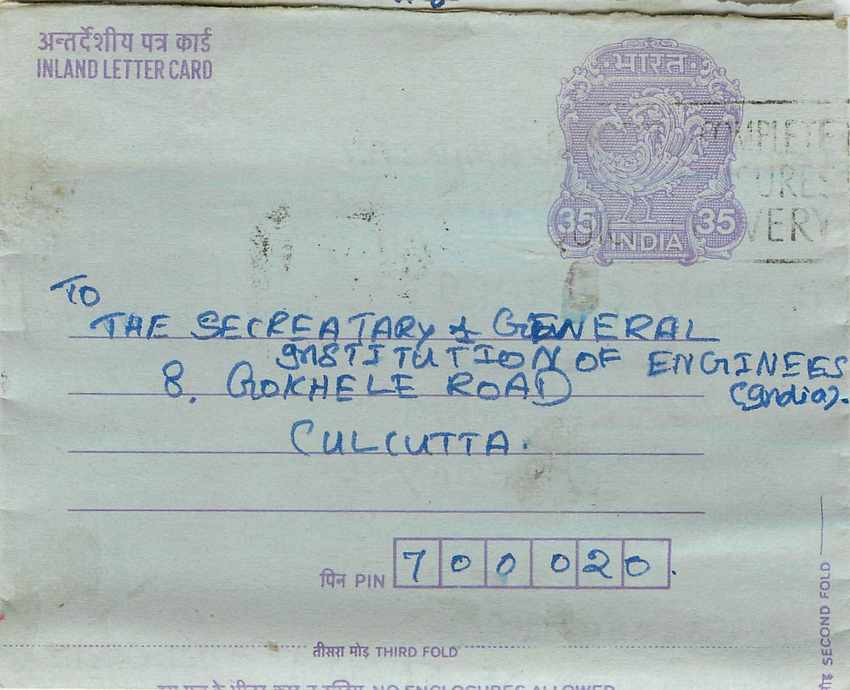 अन्तर्देशीय पत्र कार्ड
INLAND LETTER CARD
भारत
35 INDIA 35
COMPLETE
VERY
TO
THE SECREATARY & GENERAL
INSTITUTION OF ENGINEES
8. GOKHELE ROAD (India).
CULCUTTA.
पिन PIN 700020.
तीसरा मोड़ THIRD FOLD
SECOND FOLD
NO ENCLOSURES ALLOWED